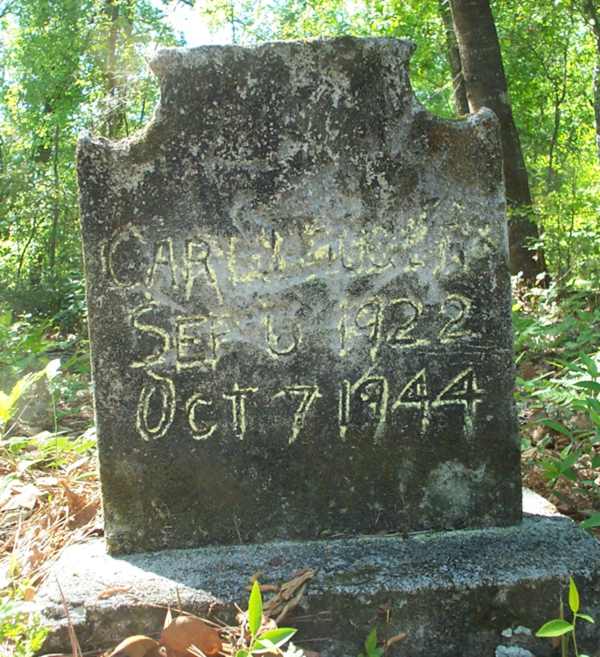 CARL
SEP 6 1922
OCT 7 1944